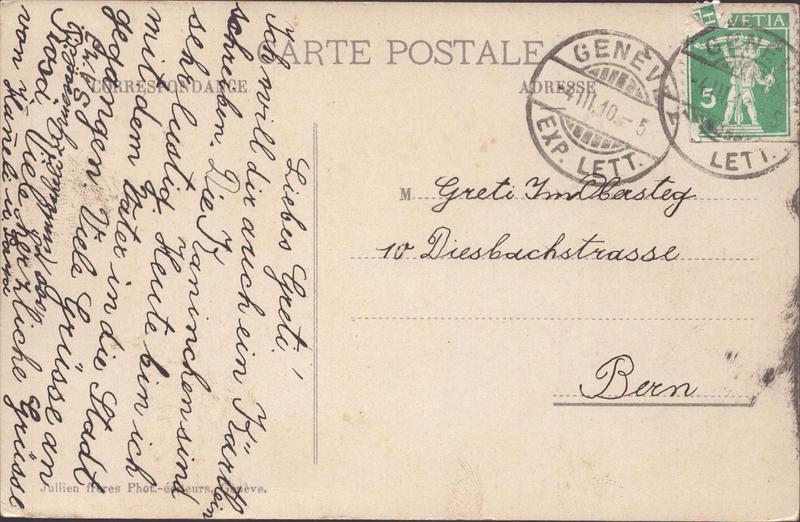 CARTE POSTALE
CORRESPONDANCE
ADRESSE
HELVETIA
5
GENÈVE
-4III.10.-5
EXP. LETT.
GENÈVE
LETT.
M Greti ImObersteg
10 Diesbachstrasse
Bern
Liebes Greti!
Ich will dir auch ein Kärtlein
schreiben. Die Kaninchen sind
sehr lustig. Heute bin ich
mit dem Vater in die Stadt
gegangen. Viele Grüsse an
Rosa. Viele
von
Viele herzliche Grüsse
Jullien frères Phot.-éditeurs, Genève.